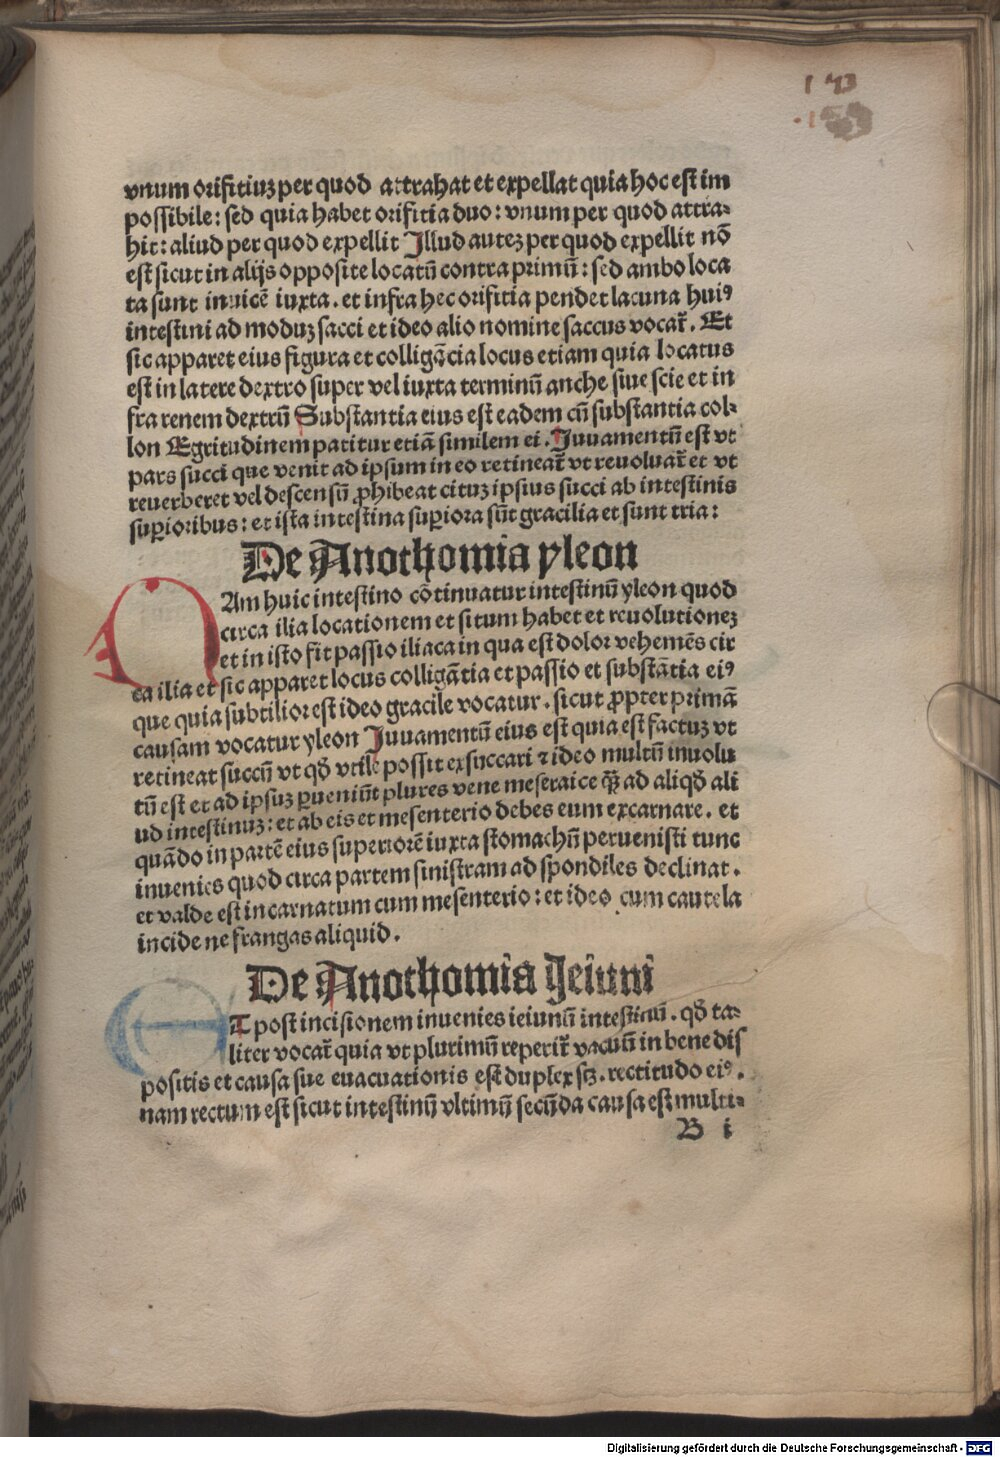 143
vnum orifitiuʒ per quod attrahat et expellat quia hoc est im
possibile: sed quia habet orifitia duo: vnum per quod attra-
hit: aliud per quod expellit Illud auteʒ per quod expellit nō
est sicut in alijs opposite locatū contra primū: sed ambo loca
ta sunt inuicē iuxta. et infra hec orifitia pendet lacuna huiꝰ
intestini ad moduʒ sacci et ideo alio nomine saccus vocat᷑. Et
sic apparet eius figura et colligācia locus etiam quia locatus
est in latere dextro super vel iuxta terminū anche siue scie et in
fra renem dextrū Substantia eius est eadem cū substantia col-
lon Egritudinem patitur etiā similem ei. Iuuamentū est vt
pars succi que venit ad ipsum in eo retineat᷑ vt reuoluat᷑ et vt
reuerberet vel descensū ꝓhibeat cituʒ ipsius succi ab intestinis
suꝑioribus: et ista intestina suꝑiora sūt gracilia et sunt tria:
De Anothomia yleon
Nam huic intestino cōtinuatur intestinū yleon quod
circa ilia locationem et situm habet et reuolutioneʒ
et in isto fit passio iliaca in qua est dolor vehemēs cir
ca ilia et sic apparet locus colligātia et passio et substātia eiꝰ
que quia subtilior est ideo gracile vocatur. sicut ꝓpter primā
causam vocatur yleon Iuuamentū eius est quia est factuʒ vt
retineat succū vt qđ vtile possit exsuccari ⁊ ideo multū inuolu
tū est et ad ipsuʒ ꝑueniūt plures vene meseraice q̄ʒ ad aliqđ ali
ud intestinuʒ: et ab eis et mesenterio debes eum excarnare. et
quādo in partē eius superiorē iuxta stomachū peruenisti tunc
inuenies quod circa partem sinistram ad spondiles declinat.
et valde est incarnatum cum mesenterio: et ideo cum cautela
incide ne frangas aliquid.
De Anothomia Jeiuni
ET post incisionem inuenies ieiunū intestinū. qđ ta-
liter vocat᷑ quia vt plurimū reperit᷑ vacuū in bene dis
positis et causa sue euacuationis est duplex sʒ. rectitudo eiꝰ.
nam rectum est sicut intestinū vltimū secūda causa est multi-
B i
Digitalisierung gefördert durch die Deutsche Forschungsgemeinschaft - DFG